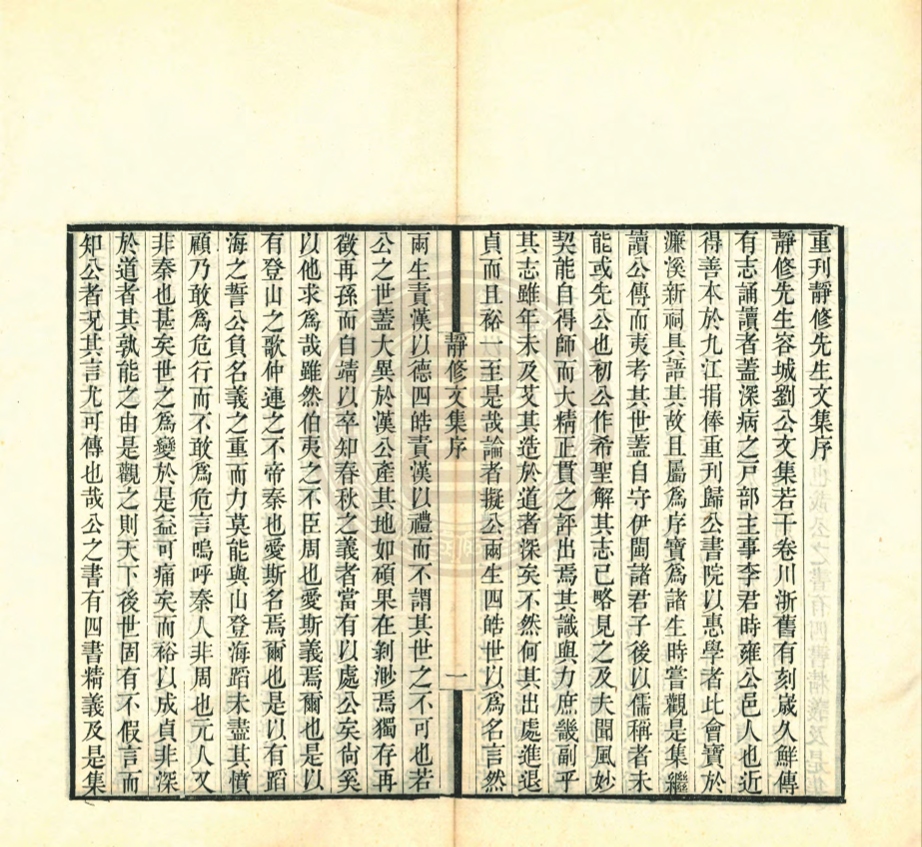 重刊靜修先生文集序
靜修先生容城劉公文集若干卷川浙舊有刻嵗久鮮傳
有志誦讀者蓋深病之戸部主事李君時雍公邑人也近
得善本於九江捐俸重刊歸公書院以惠學者比會寶於
濂溪新祠具語其故且屬爲序寶爲諸生時嘗觀是集繼
讀公傳而夷考其世蓋自守伊閩諸君子後以儒稱者未
能或先公也初公作希聖解其志已略見之及夫聞風妙
契能自得師而大精正貫之評出焉其識與力庶畿副乎
其志雖年未及艾其造於道者深矣不然何其出處進退
貞而且裕一至是哉論者擬公兩生四皓世以爲名言然
靜修文集序
一
兩生責漢以德四皓責漢以禮而不謂其世之不可也若
公之世蓋大異於漢公產其地如碩果在剝渺焉獨存再
徵再孫而自靖以卒知春秋之義者當有以處公矣尙奚
以他求爲哉雖然伯夷之不臣周也愛斯義焉爾也是以
有登山之歌仲連之不帝秦也愛斯名焉爾也是以有蹈
海之誓公負名義之重而力莫能與山登海蹈未盡其憤
顧乃敢爲危行而不敢爲危言嗚呼秦人非周也元人又
非秦也甚矣世之爲變於是益可痛矣而裕以成貞非深
於道者其孰能之由是觀之則天下後世固有不假言而
知公者況其言尤可傳也哉公之書有四書精義及是集